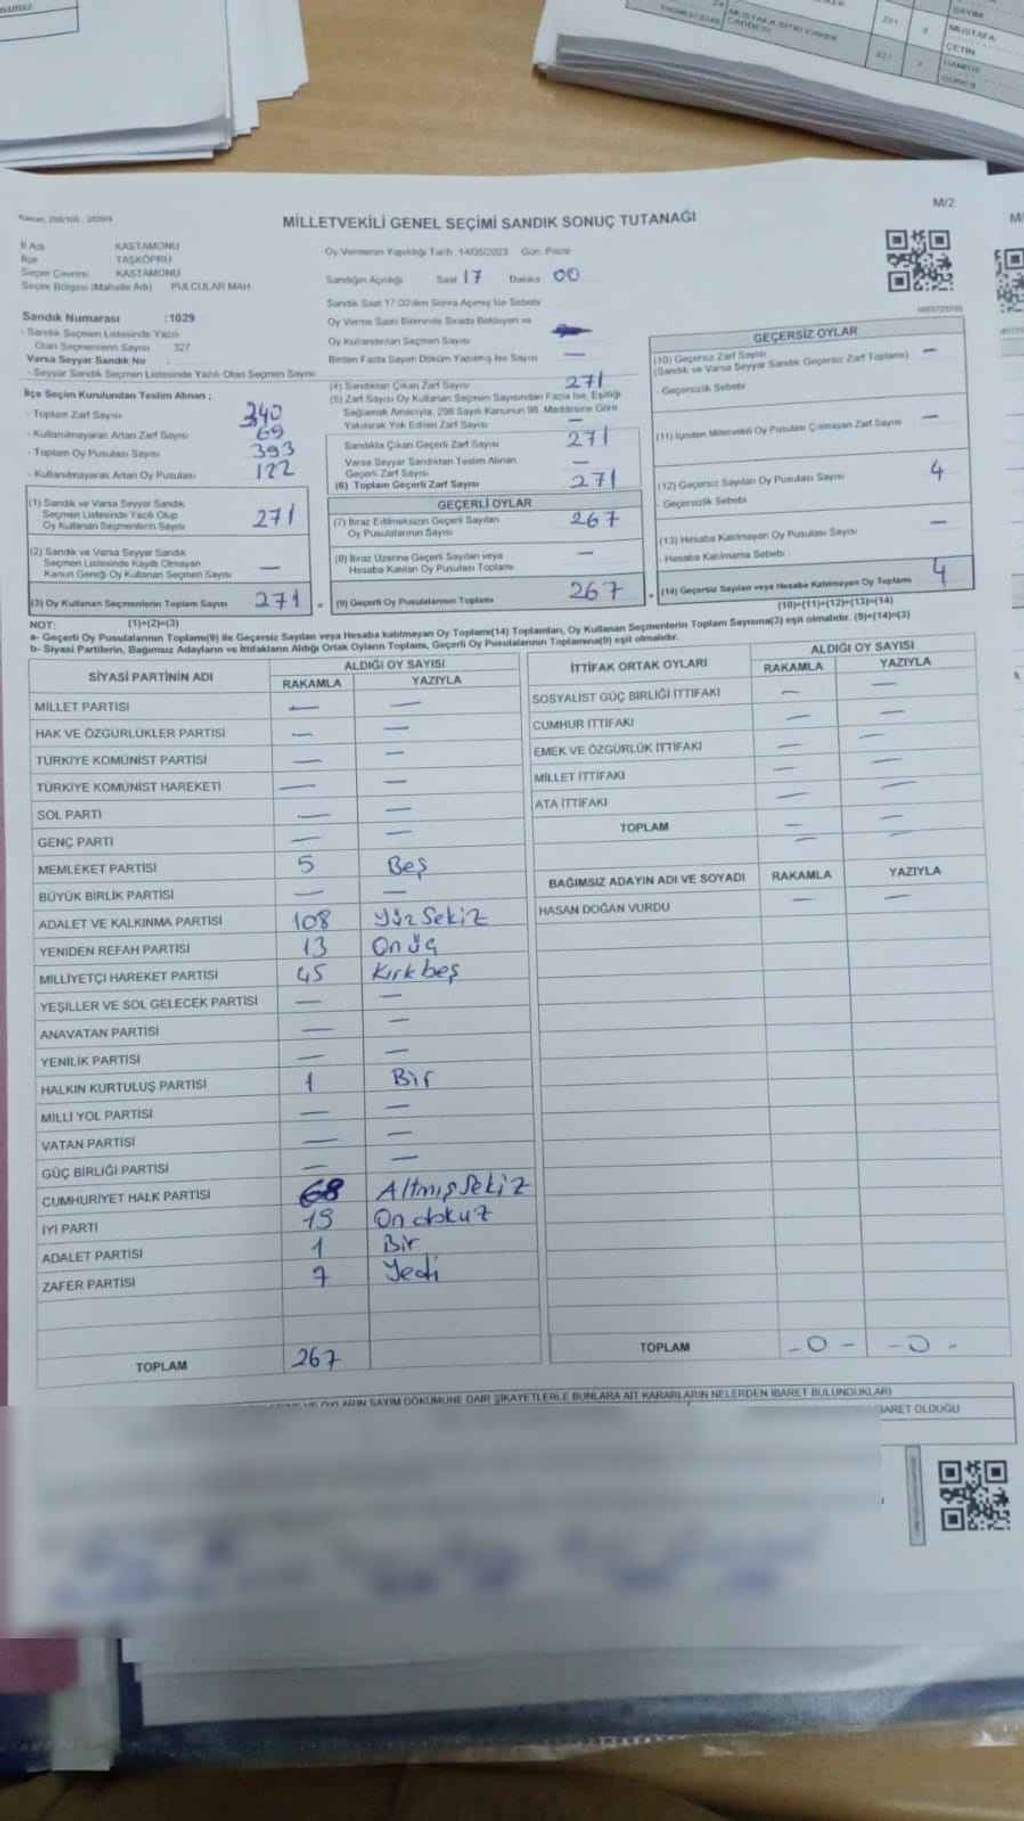 M/2
MİLLETVEKİLİ GENEL SEÇİMİ SANDIK SONUÇ TUTANAĞI
İl Adı KASTAMONU
İlçe TAŞKÖPRÜ
Seçim Çevresi KASTAMONU
Seçim Bölgesi (Mahalle Adı) PULCULAR MAH.
Oy Vermenin Yapıldığı Tarih :14/05/2023 Gün: Pazar
Sandığın Açıldığı Saat 17 Dakika 00
Sandık Saat 17.00'den Sonra Açılmış İse Sebebi
Sandık Numarası :1029
- Sandık Seçmen Listesinde Yazılı
Olan Seçmenlerin Sayısı 327
Varsa Seyyar Sandık No
- Seyyar Sandık Seçmen Listesinde Yazılı Olan Seçmen Sayısı
Oy Verme Saati Bitiminde Sırada Bekleyen ve
Oy Kullandırılan Seçmen Sayısı
Birden Fazla Sayım Döküm Yapılmış İse Sayısı —
İlçe Seçim Kurulundan Teslim Alınan ;
- Toplam Zarf Sayısı 340
- Kullanılmayarak Artan Zarf Sayısı 69
- Toplam Oy Pusulası Sayısı 393
- Kullanılmayarak Artan Oy Pusulası 122
(1) Sandık ve Varsa Seyyar Sandık
Seçmen Listesinde Yazılı Olup
Oy Kullanan Seçmenlerin Sayısı 271
(2) Sandık ve Varsa Seyyar Sandık
Seçmen Listesinde Kayıtlı Olmayan
Kanun Gereği Oy Kullanan Seçmen Sayısı —
(3) Oy Kullanan Seçmenlerin Toplam Sayısı 271
(4) Sandıktan Çıkan Zarf Sayısı 271
(5) Zarf Sayısı Oy Kullanan Seçmen Sayısından Fazla İse, Eşitliği
Sağlamak Amacıyla, 298 Sayılı Kanunun 98. Maddesine Göre
Yakılarak Yok Edilen Zarf Sayısı —
Sandıkta Çıkan Geçerli Zarf Sayısı 271
Varsa Seyyar Sandıktan Teslim Alınan
Geçerli Zarf Sayısı —
(6) Toplam Geçerli Zarf Sayısı 271
GEÇERLİ OYLAR
(7) İtiraz Edilmeksizin Geçerli Sayılan
Oy Pusulalarının Sayısı 267
(8) İtiraz Üzerine Geçerli Sayılan veya
Hesaba Katılan Oy Pusulası Toplamı —
(9) Geçerli Oy Pusulalarının Toplamı 267
GEÇERSİZ OYLAR
(10) Geçersiz Zarf Sayısı
(Sandık ve Varsa Seyyar Sandık Geçersiz Zarf Toplamı) —
- Geçersizlik Sebebi
(11) İçinden Milletvekili Oy Pusulası Çıkmayan Zarf Sayısı —
(12) Geçersiz Sayılan Oy Pusulası Sayısı 4
- Geçersizlik Sebebi
(13) Hesaba Katılmayan Oy Pusulası Sayısı —
- Hesaba Katılmama Sebebi
(14) Geçersiz Sayılan veya Hesaba Katılmayan Oy Toplamı 4
NOT: (1)+(2)=(3)
(10)+(11)+(12)+(13)=(14)
a- Geçerli Oy Pusulalarının Toplamı(9) ile Geçersiz Sayılan veya Hesaba katılmayan Oy Toplamı(14) Toplamları, Oy Kullanan Seçmenlerin Toplam Sayısına(3) eşit olmalıdır. (9)+(14)=(3)
b- Siyasi Partilerin, Bağımsız Adayların ve İttifakların Aldığı Ortak Oyların Toplamı, Geçerli Oy Pusulalarının Toplamına(9) eşit olmalıdır.
SİYASİ PARTİNİN ADI ALDIĞI OY SAYISI
RAKAMLA YAZIYLA
MİLLET PARTİSİ — —
HAK VE ÖZGÜRLÜKLER PARTİSİ — —
TÜRKİYE KOMÜNİST PARTİSİ — —
TÜRKİYE KOMÜNİST HAREKETİ — —
SOL PARTİ — —
GENÇ PARTİ — —
MEMLEKET PARTİSİ 5 Beş
BÜYÜK BİRLİK PARTİSİ — —
ADALET VE KALKINMA PARTİSİ 108 Yüz Sekiz
YENİDEN REFAH PARTİSİ 13 On üç
MİLLİYETÇİ HAREKET PARTİSİ 45 Kırk beş
YEŞİLLER VE SOL GELECEK PARTİSİ — —
ANAVATAN PARTİSİ — —
YENİLİK PARTİSİ — —
HALKIN KURTULUŞ PARTİSİ 1 Bir
MİLLİ YOL PARTİSİ — —
VATAN PARTİSİ — —
GÜÇ BİRLİĞİ PARTİSİ — —
CUMHURİYET HALK PARTİSİ 68 Altmış Sekiz
İYİ PARTİ 19 On dokuz
ADALET PARTİSİ 1 Bir
ZAFER PARTİSİ 7 Yedi
TOPLAM 267
İTTİFAK ORTAK OYLARI ALDIĞI OY SAYISI
RAKAMLA YAZIYLA
SOSYALİST GÜÇ BİRLİĞİ İTTİFAKI — —
CUMHUR İTTİFAKI — —
EMEK VE ÖZGÜRLÜK İTTİFAKI — —
MİLLET İTTİFAKI — —
ATA İTTİFAKI — —
TOPLAM — —
BAĞIMSIZ ADAYIN ADI VE SOYADI RAKAMLA YAZIYLA
HASAN DOĞAN VURDU — —
TOPLAM - 0 - - 0 -
OYLARIN SAYIM DÖKÜMÜNE DAİR ŞİKAYETLERLE BUNLARA AİT KARARLARIN NELERDEN İBARET BULUNDUKLARI
İBARET OLDUĞU